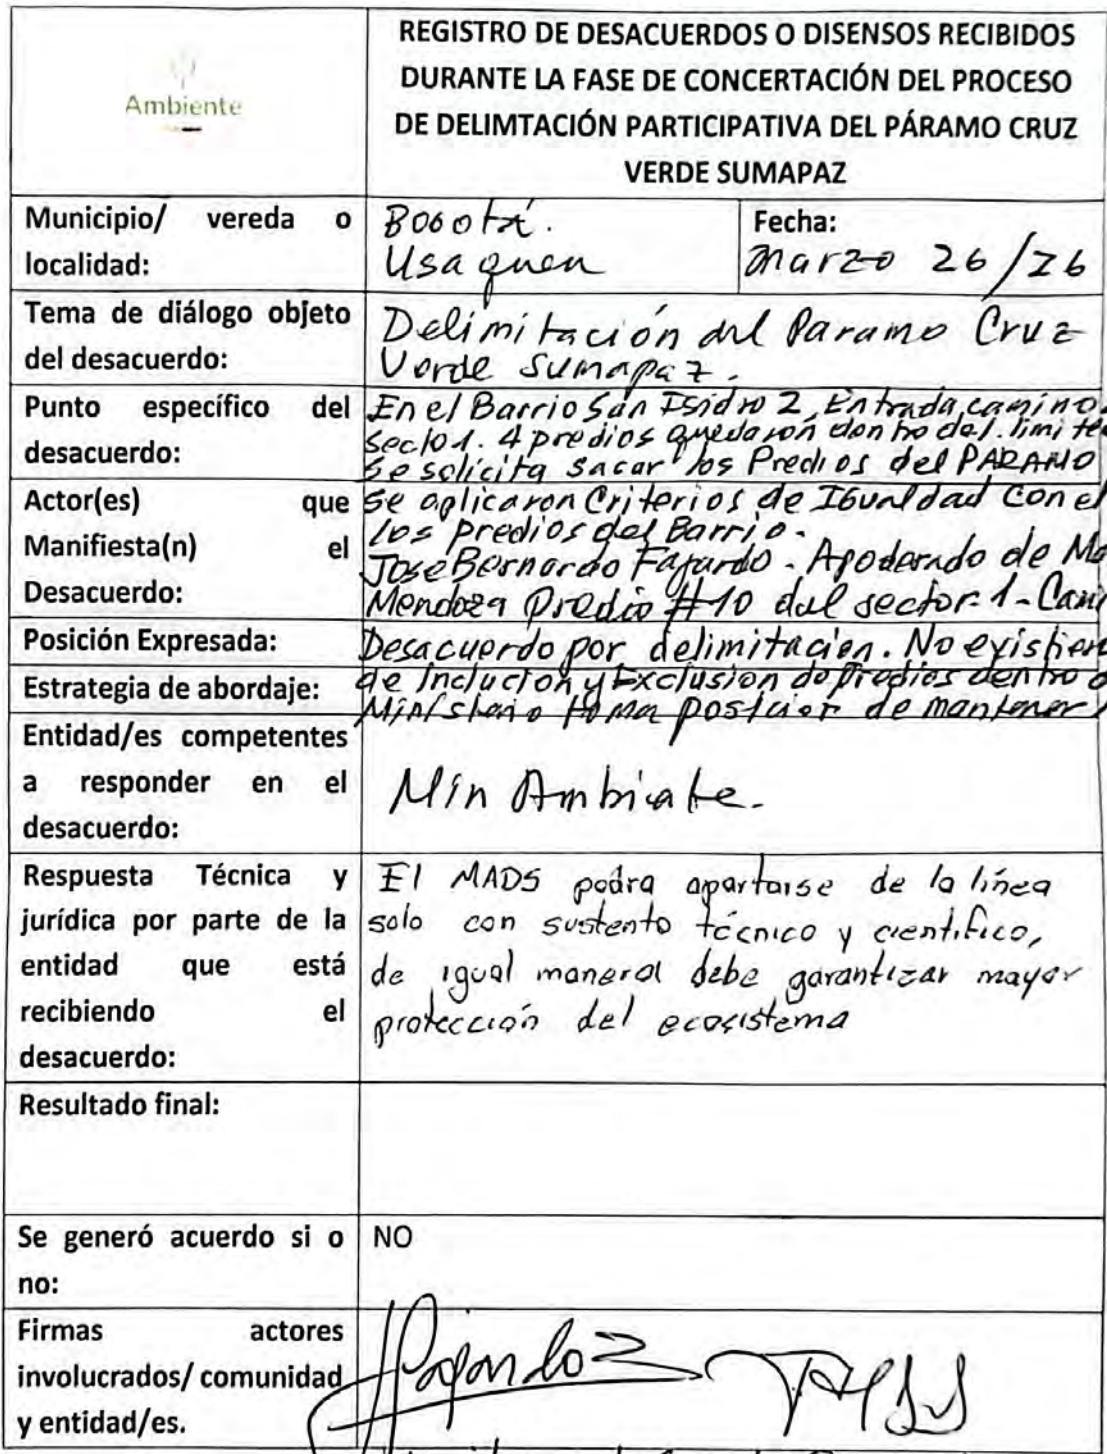 Ambiente
REGISTRO DE DESACUERDOS O DISENSOS RECIBIDOS
DURANTE LA FASE DE CONCERTACIÓN DEL PROCESO
DE DELIMTACIÓN PARTICIPATIVA DEL PÁRAMO CRUZ
VERDE SUMAPAZ
Municipio/ vereda o
localidad:
Bogotá.
Usaquen
Fecha:
Marzo 26/26
Tema de diálogo objeto
del desacuerdo:
Delimitación del Paramo Cruz
Verde Sumapaz.
Punto específico del
desacuerdo:
En el Barrio San Isidro 2, Entrada camino
sector 1. 4 predios quedaron dentro del limite
se solicita sacar los Predios del PARAMO
Actor(es) que
Manifiesta(n) el
Desacuerdo:
se aplicaron Criterios de Igualdad Con el
los predios del Barrio.
Jose Bernardo Fajardo - Apoderado de Ma
Mendoza Predio #10 del sector-1-Cami
Posición Expresada:
Desacuerdo por delimitación. No existien
Estrategia de abordaje:
de Inclución y Exclusión de Predios dentro d
Ministerio toma posicion de mantener
Entidad/es competentes
a responder en el
desacuerdo:
Min Ambiate.
Respuesta Técnica y
jurídica por parte de la
entidad que está
recibiendo el
desacuerdo:
El MADS podra apartarse de la línea
solo con sustento técnico y cientifico,
de igual manera debe garantizar mayor
protección del ecosistema
Resultado final:
Se generó acuerdo si o
no:
NO
Firmas actores
involucrados/ comunidad
y entidad/es.